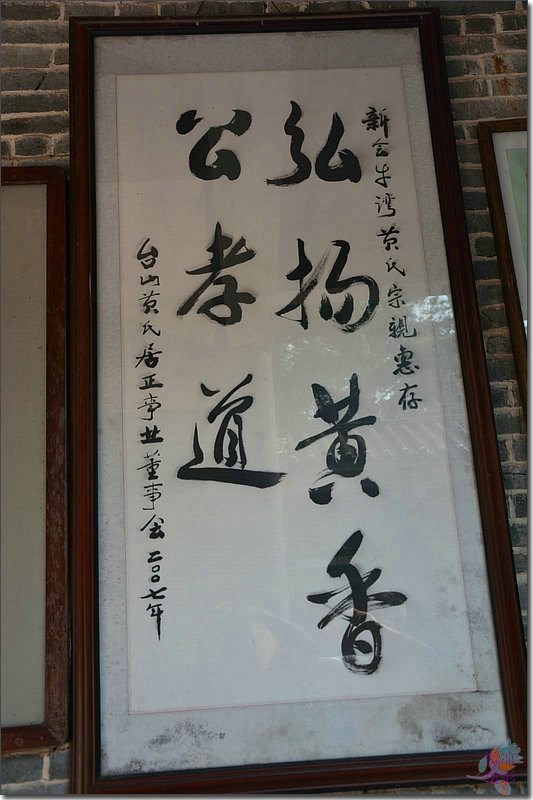 新会牛湾黄氏宗親惠存
弘扬黄香
公孝道
台山黄氏居正事业董事会二〇〇七年